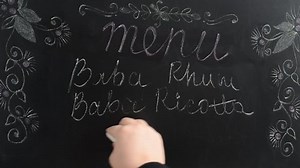 menu
Baba Rhum
Baba Ricotta